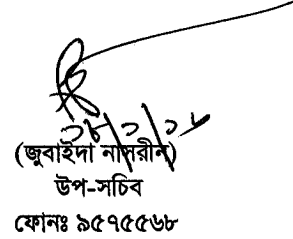 (জুবাইদা নাসরীন)
উপ-সচিব
ফোনঃ ৯৫৭৫৫৬৮